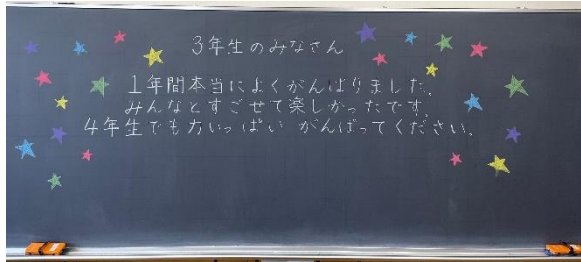 3年生のみなさん
1年間本当によくがんばりました。
みんなとすごせて楽しかったです。
4年生でも力いっぱい がんばってください。